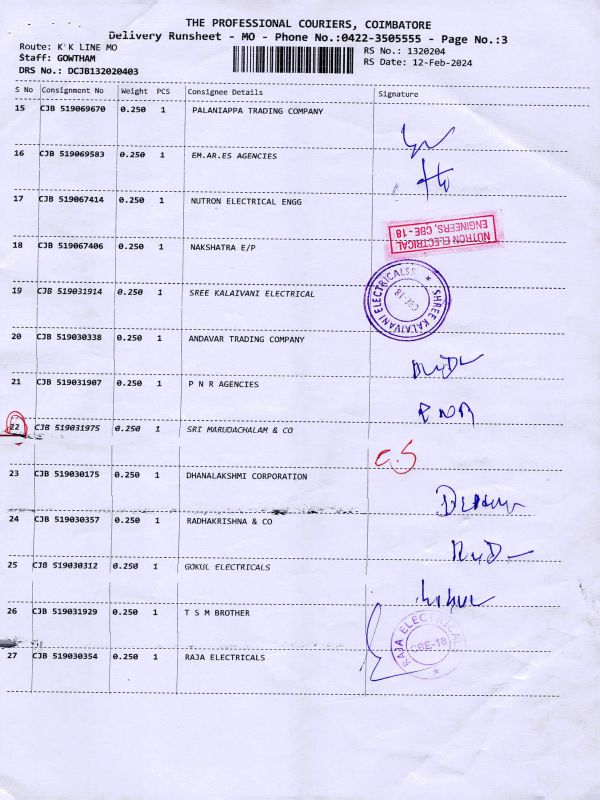 THE PROFESSIONAL COURIERS, COIMBATORE
Delivery Runsheet - MO - Phone No.:0422-3505555 - Page No.:3
Route: K K LINE MO
RS No.: 1320204
Staff: GOWTHAM
RS Date: 12-Feb-2024
DRS No.: DCJB132020403
S No Consignment No Weight PCS Consignee Details Signature
15 CJB 519069670 0.250 1 PALANIAPPA TRADING COMPANY
16 CJB 519069583 0.250 1 EM.AR.ES AGENCIES
17 CJB 519067414 0.250 1 NUTRON ELECTRICAL ENGG
NUTRON ELECTRICAL
ENGINEERS, CBE-18
18 CJB 519067406 0.250 1 NAKSHATRA E/P
19 CJB 519031914 0.250 1 SREE KALAIVANI ELECTRICAL
SHREE KALAIVANI ELECTRICALSS
CBE-18
20 CJB 519030338 0.250 1 ANDAVAR TRADING COMPANY
21 CJB 519031907 0.250 1 P N R AGENCIES
PNR
22 CJB 519031975 0.250 1 SRI MARUDACHALAM & CO
CS
23 CJB 519030175 0.250 1 DHANALAKSHMI CORPORATION
24 CJB 519030357 0.250 1 RADHAKRISHNA & CO
25 CJB 519030312 0.250 1 GOKUL ELECTRICALS
26 CJB 519031929 0.250 1 T S M BROTHER
27 CJB 519030354 0.250 1 RAJA ELECTRICALS
RAJA ELECTRICAL
CBE-18